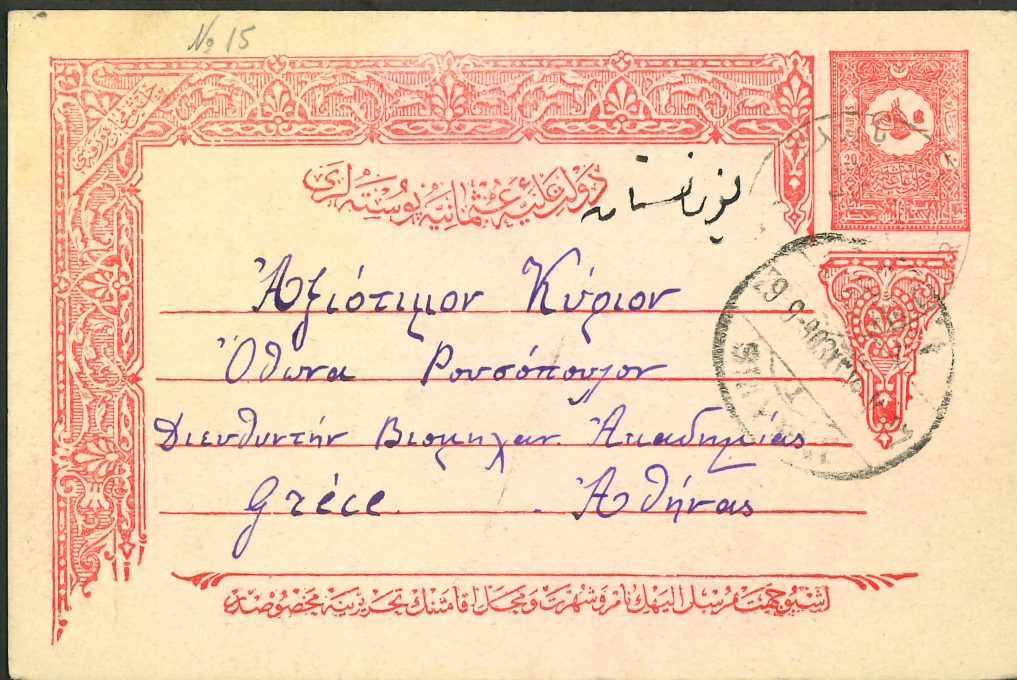 No 15
دولت علیه عثمانیه پوسته لری
یونانستان
20
٢٠
Ἀξιότιμον Κύριον
Ὄθωνα Ρουσόπουλον
Διευθυντήν Βιομηχαν. Ἀκαδημίας
Grèce. Ἀθήνας
اشبو جهت مرسل الیهك نام و شهرت و محل اقامتنك تحریرینه مخصوصدر